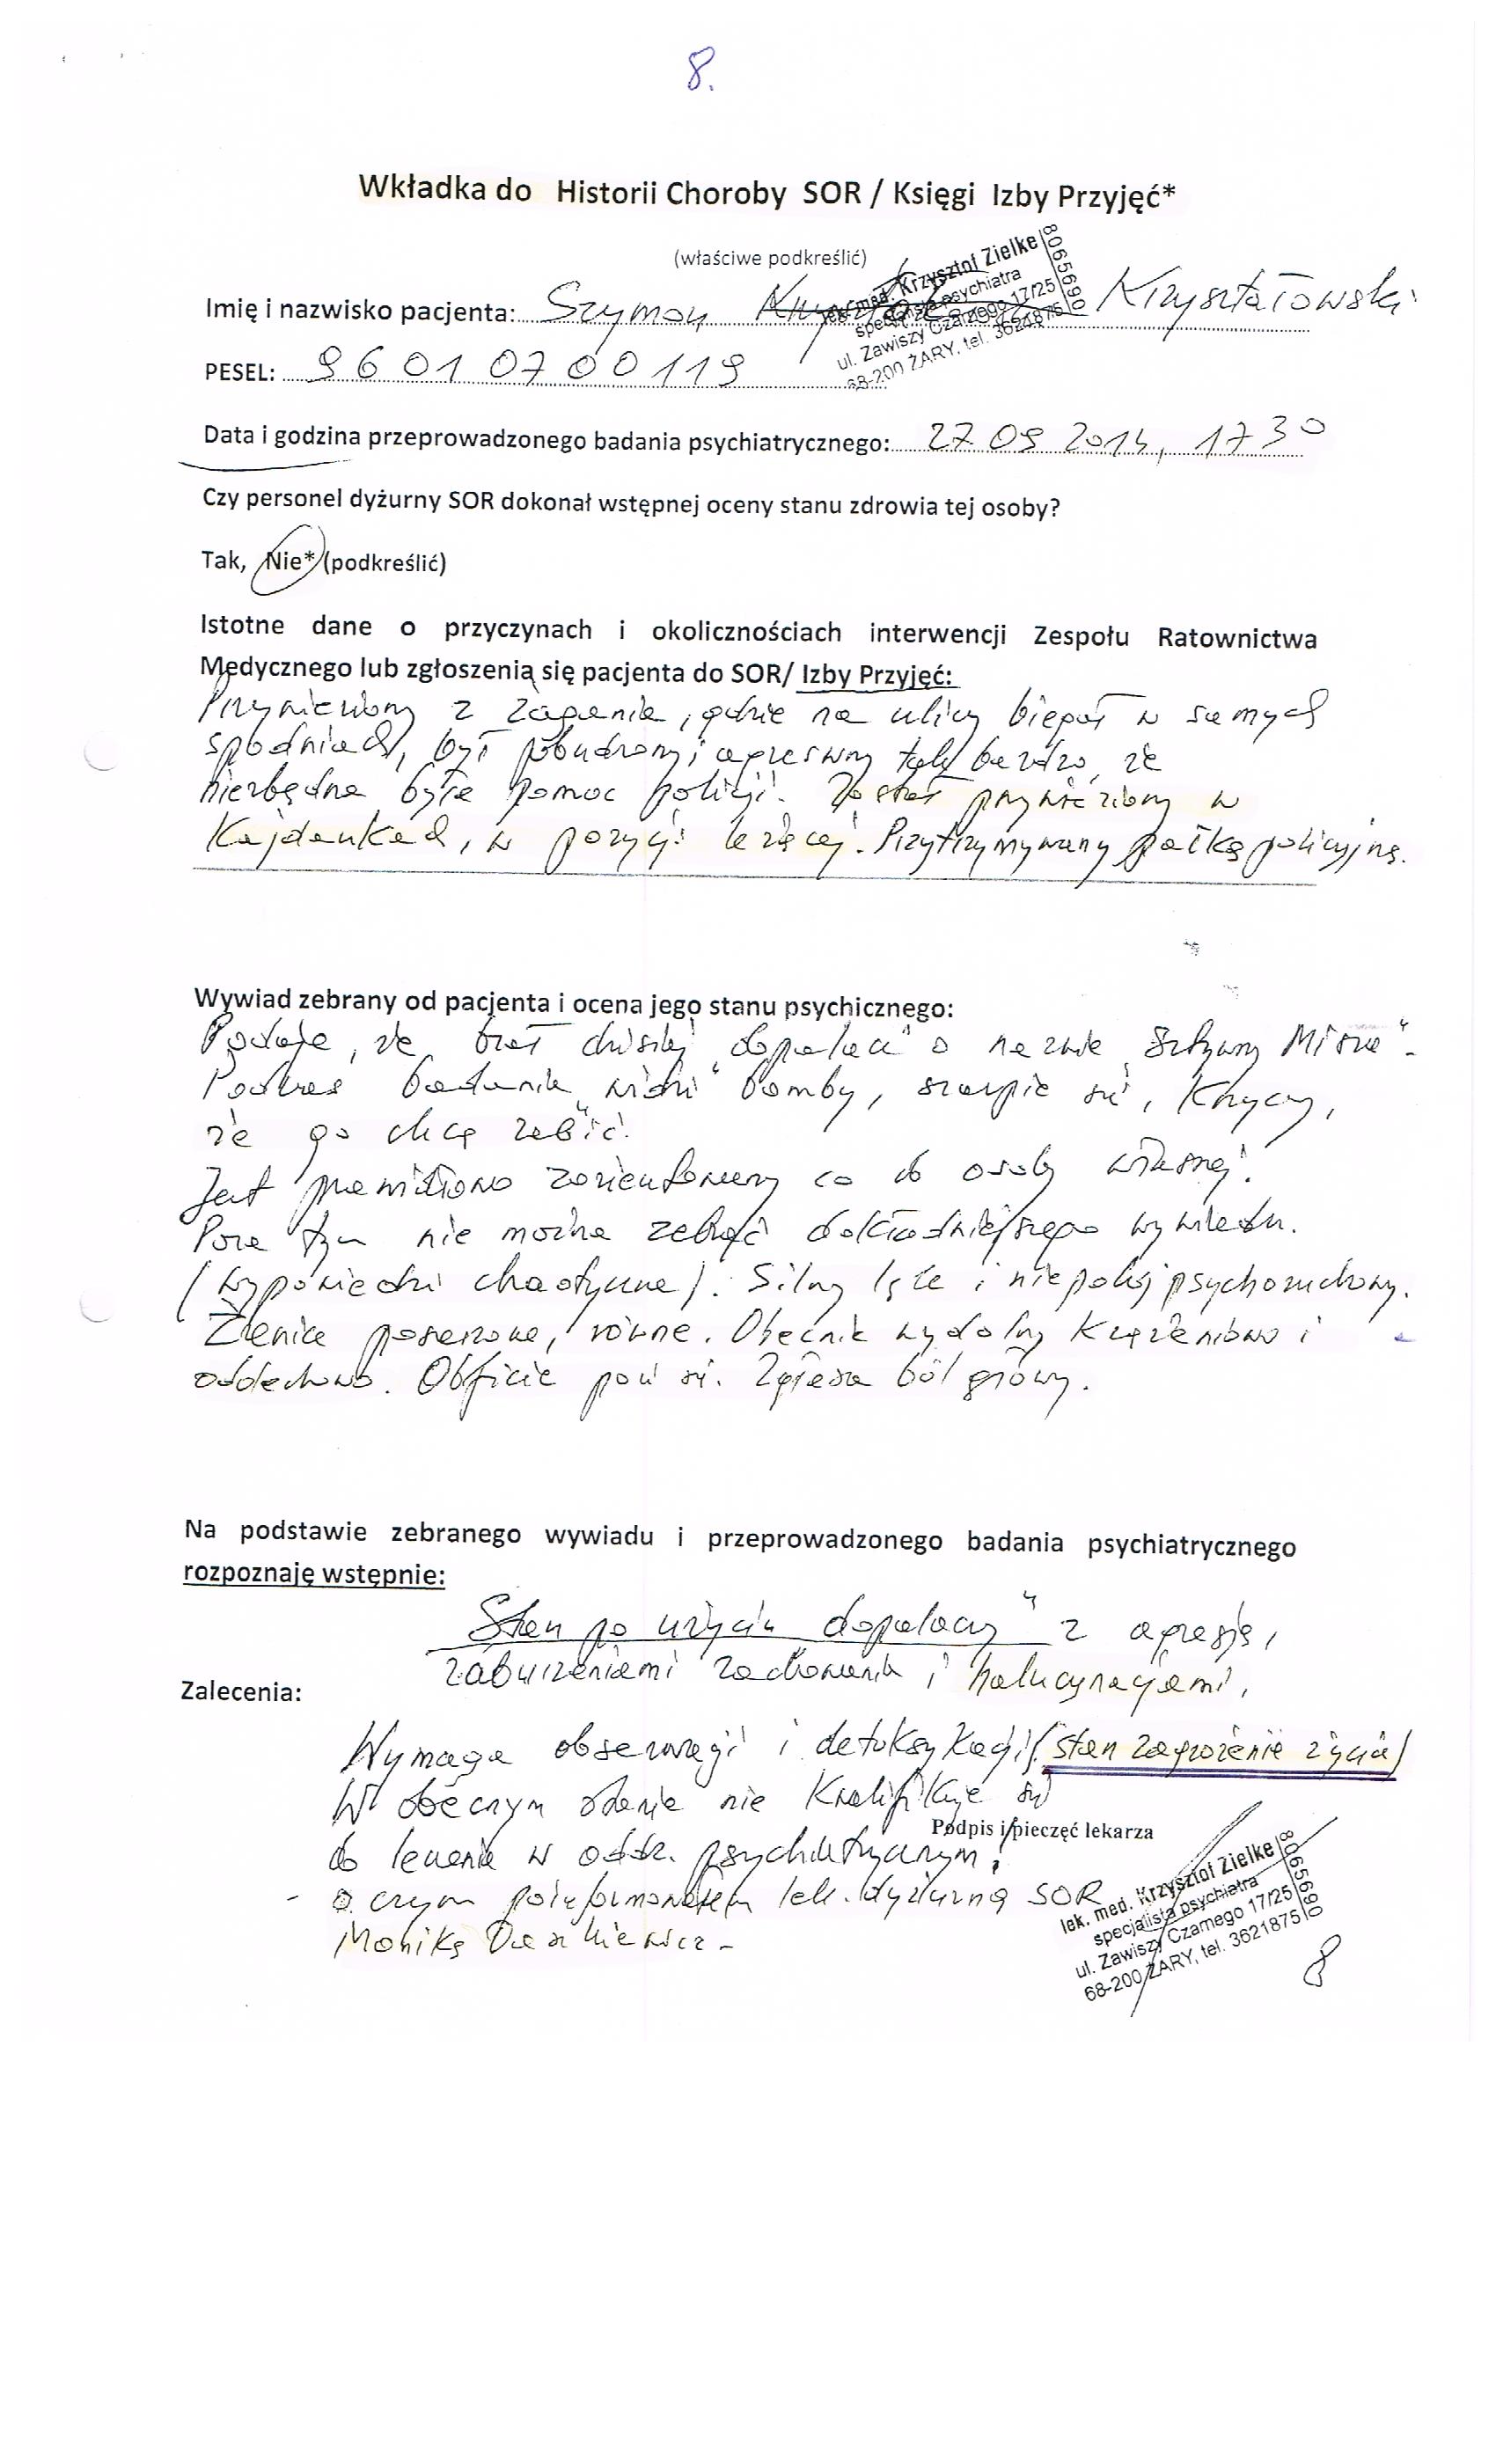 8.
Wkładka do Historii Choroby SOR / Księgi Izby Przyjęć*
(właściwe podkreślić)
Imię i nazwisko pacjenta: Szymon Krzyształowski
lek. med. Krzysztof Zielke
specjalista psychiatra
ul. Zawiszy Czarnego 17/25
68-200 ŻARY, tel. 3621875
8065690
PESEL: 96010700119
Data i godzina przeprowadzonego badania psychiatrycznego: 27 09 2014, 17 30
Czy personel dyżurny SOR dokonał wstępnej oceny stanu zdrowia tej osoby?
Tak, Nie* (podkreślić)
Istotne dane o przyczynach i okolicznościach interwencji Zespołu Ratownictwa
Medycznego lub zgłoszenia się pacjenta do SOR/ Izby Przyjęć:
Przywieziony z Żagania, gdzie na ulicy biegał w samych
spodniach, był pobudzony i agresywny tak bardzo, że
niezbędna była pomoc policji. Został przywieziony w
Kajdankach, w pozycji leżącej. Przytrzymywany pałką policyjną.
Wywiad zebrany od pacjenta i ocena jego stanu psychicznego:
Podaje, że brał dzisiaj „dopalacz" o nazwie „Sztywny Misza".
Podczas badania „widzi" bomby, szarpie się, Krzyczy,
że go chcą zabić.
Jest prawidłowo zorientowany co do osoby własnej.
Poza tym nie można zebrać dokładniejszego wywiadu.
(wypowiedzi chaotyczne). Silny lęk i niepokój psychoruchowy.
Źrenice poszerzone, równe. Obecnie wydolny Krążeniowo i
oddechowo. Obficie poci się. Zgłasza ból głowy.
Na podstawie zebranego wywiadu i przeprowadzonego badania psychiatrycznego
rozpoznaję wstępnie:
Stan po użyciu dopalaczy" z agresją,
zaburzeniami zachowania i halucynacjami,
Zalecenia:
Wymaga obserwacji i detoksykacji (stan zagrożenia życia)
W obecnym stanie nie Kwalifikuje się
Podpis i pieczęć lekarza
do leczenia w oddz. psychiatrycznym,
- o czym poinformowałem lek. dyżurną SOR
Monikę
lek. med. Krzysztof Zielke
specjalista psychiatra
ul. Zawiszy Czarnego 17/25
68-200 ŻARY, tel. 3621875
8065690
8